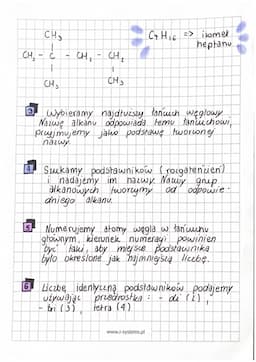 CH₃
C₇H₁₆ => izomer
heptanu
CH₃ - C - CH₂ - CH₂
CH₃ CH₃
Wybieramy najdłuższy łańcuch węglowy
Nazwę alkanu odpowiada temu łańcuchowi,
przyjmujemy jako podstawę tworzonej
nazwy.
Szukamy podstawników (rozgałęzień)
i nadajemy im nazwy. Nazwy grup
alkanowych tworzymy od odpowie-
dniego alkanu.
Numerujemy atomy węgla w łańcuchu
głównym, kierunek numeracji powinien
być taki, aby miejsce podstawnika
było określone jak najmniejszą liczbę.
Liczbę identyczną podstawników podajemy
używając przedrostka: - di (2),
- tri (3), tetra (4)
www.i-systems.pl